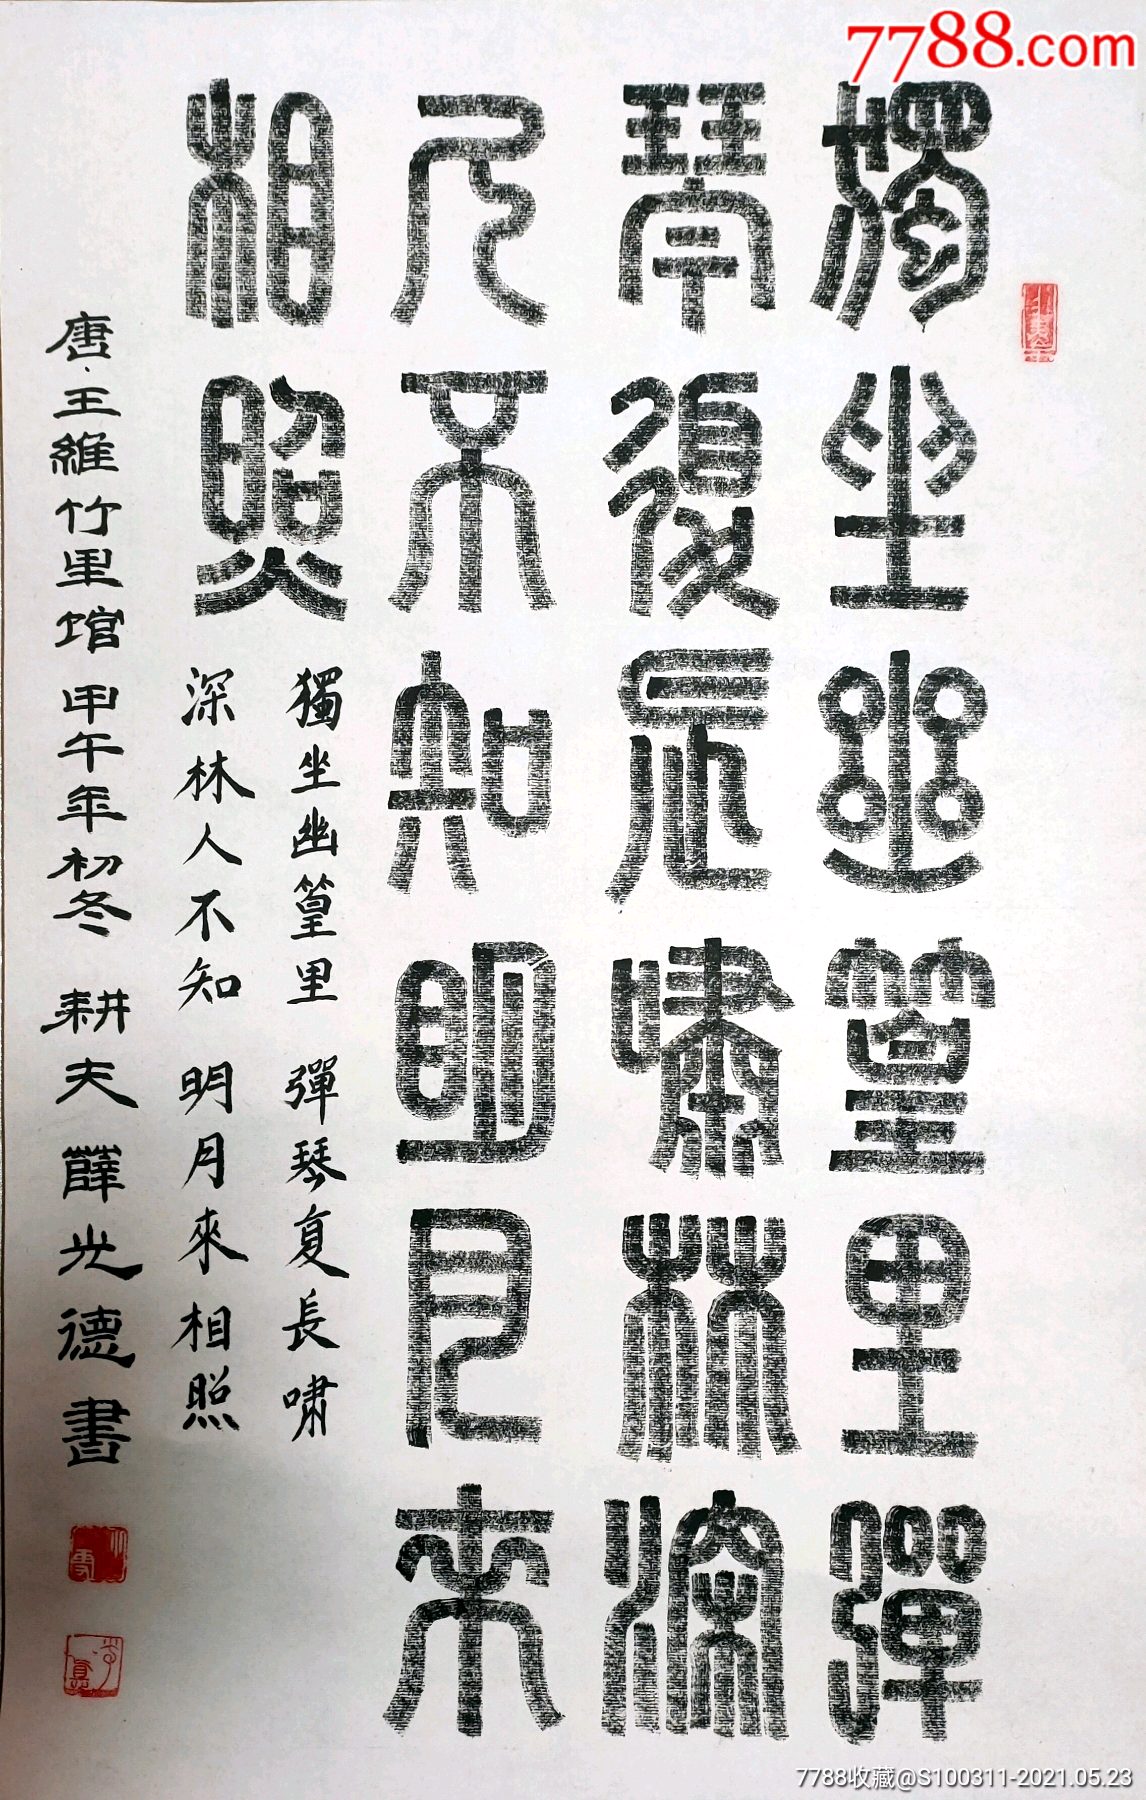 7788.com
獨坐幽篁里彈
琴復長嘯林深
人不知明月來
相照
獨坐幽篁里 彈琴复長嘯
深林人不知 明月來相照
唐·王維竹里馆 甲午年初冬 耕夫 薛光德書
7788收藏@S100311-2021.05.23